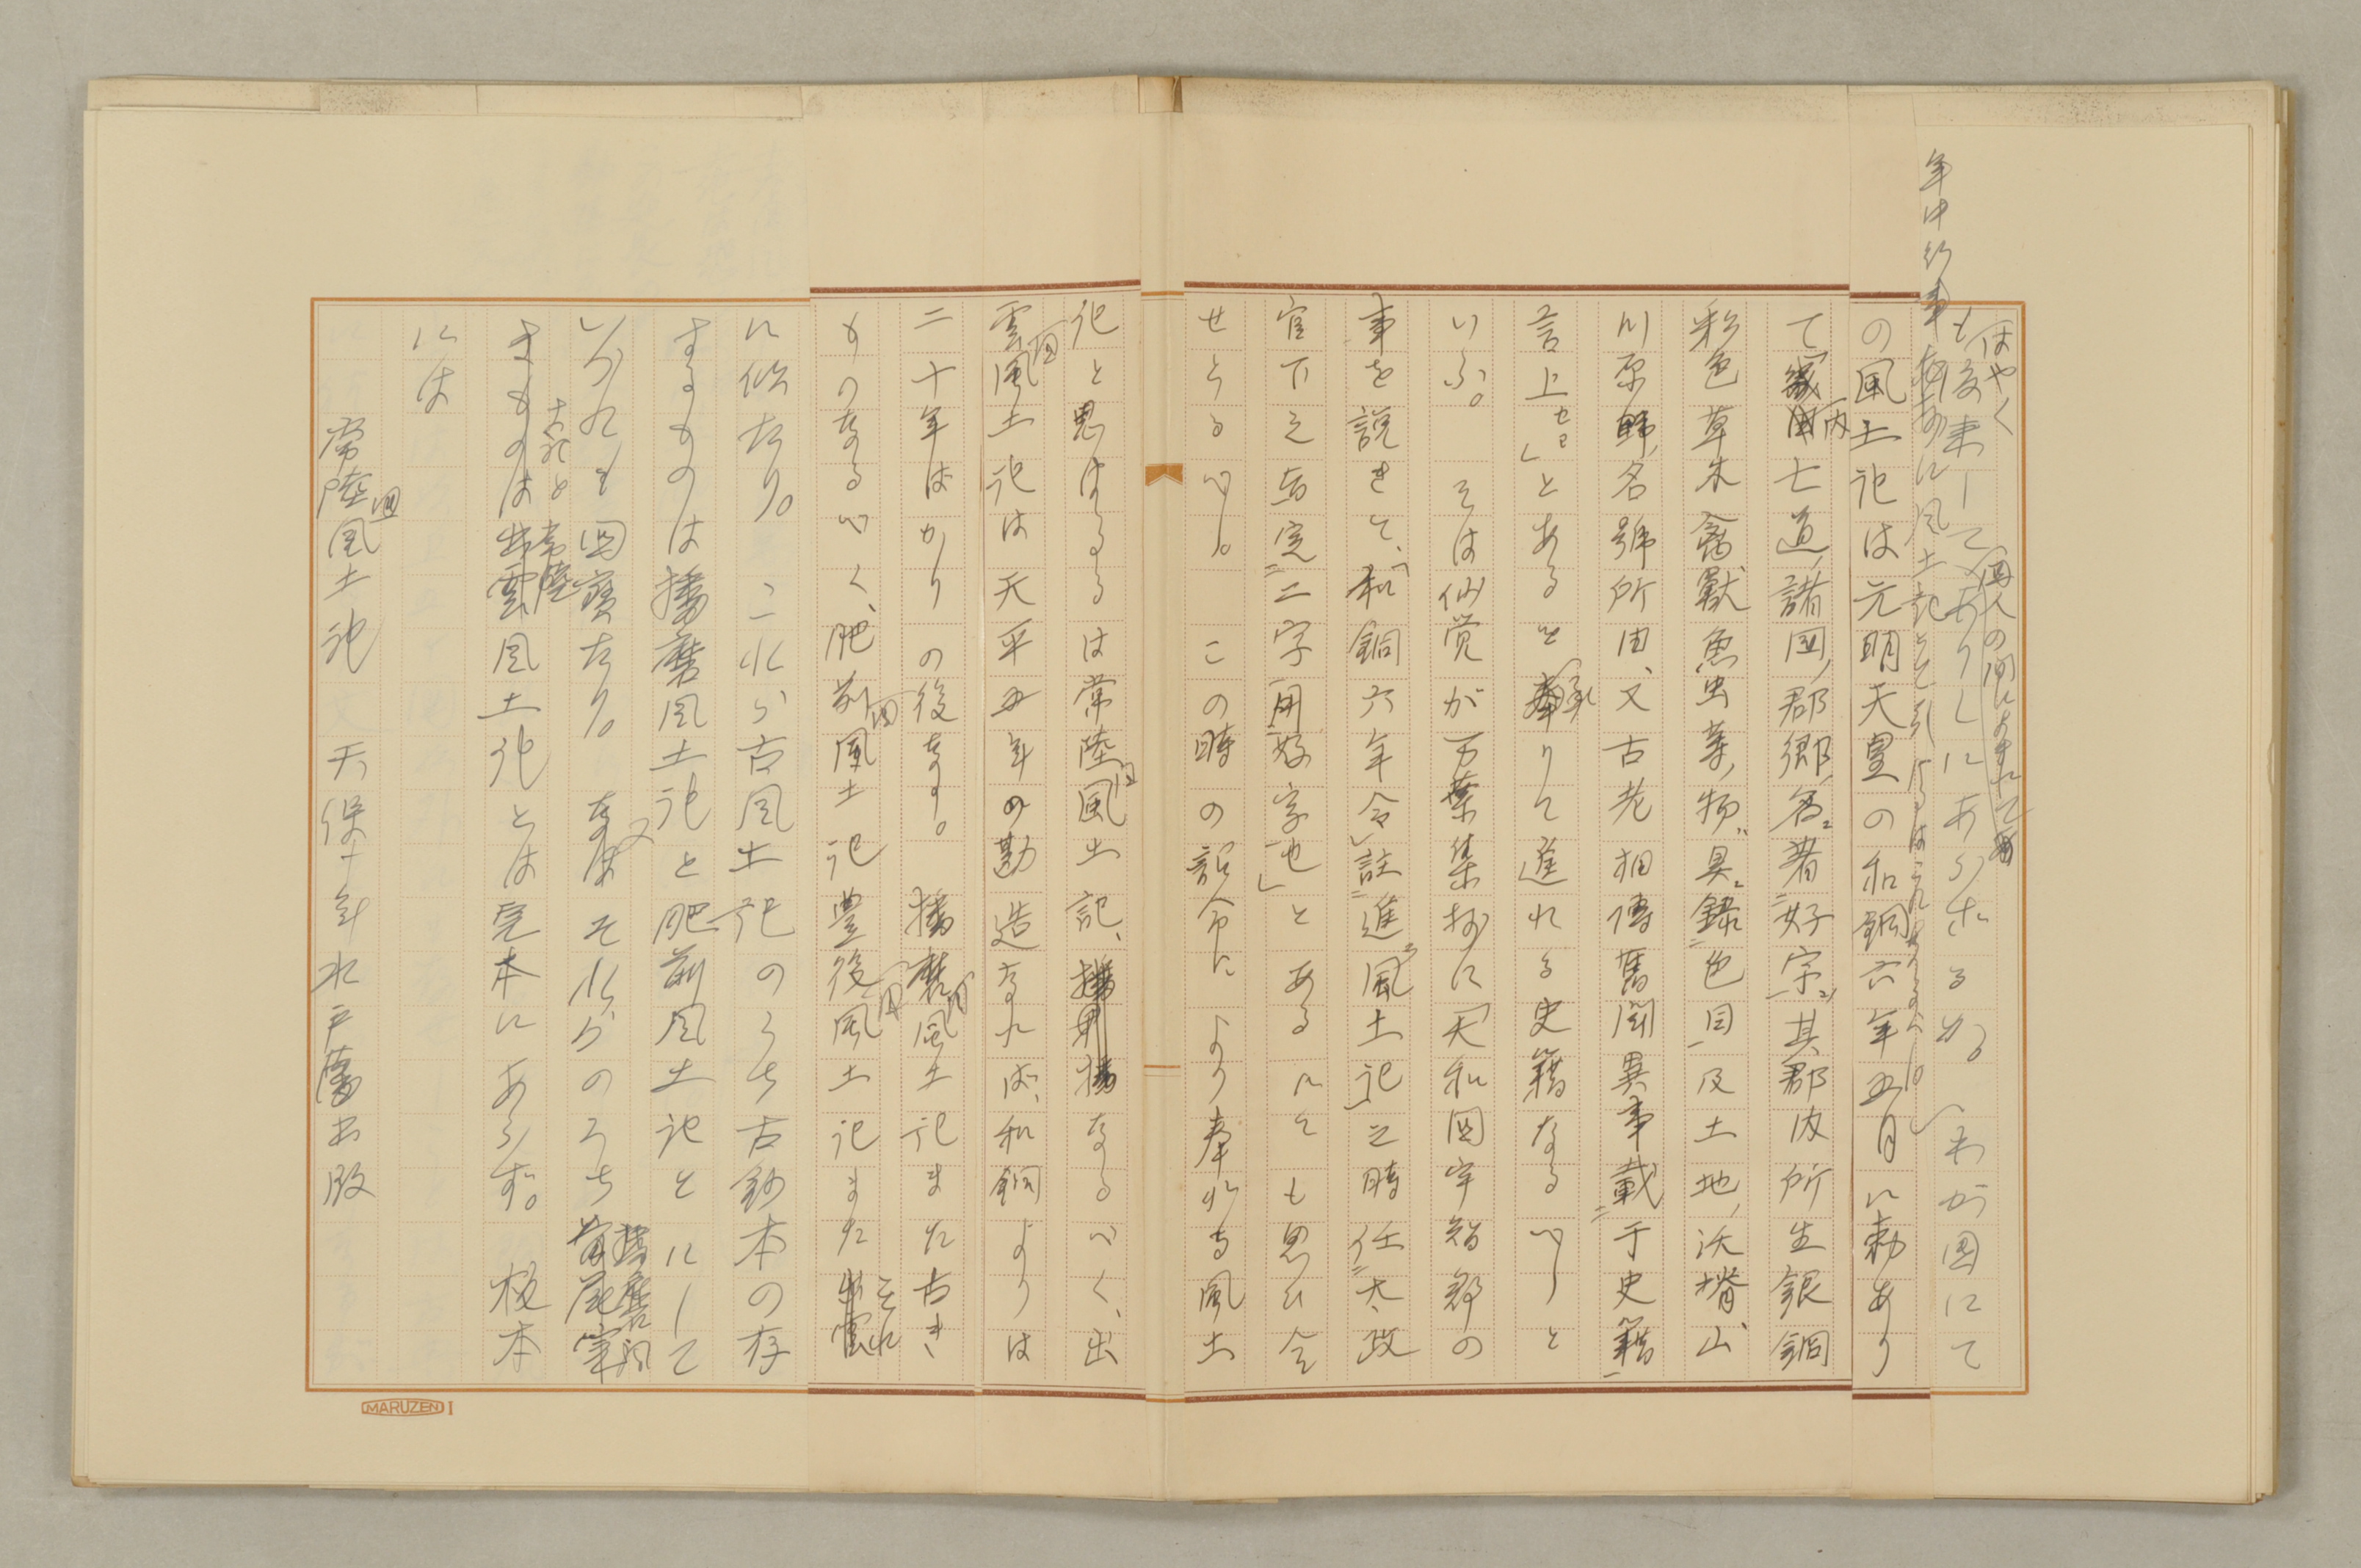 年中行事
はやく
も渡来して
国人の間に
ありしにあらざるか。わが国にて
の風土記は元明天皇の和銅六年五月に勅あり
て畿内七道諸国郡郷名著好字其郡内所生銀銅
彩色草木禽獣魚虫等物具録色目及土地沃塉山
川原野名号所由、又古老相傳舊聞異事載于史籍
言上セヨ」とあると承りて進れる史籍なるべしと
いふ。そは仙覚が万葉集抄に「天和国宇智郡の
事を説きて、「和銅六年令」註進風土記」之時任太政
官下之宣定二字用好字也」とあるにても思ひ合
せらるべし。この時の詔命により奉れる風土
記と思はるるは常陸国風土記、播磨なるべく、出
雲国風土記は天平五年の勘造なれば、和銅よりは
二十年ばかりの後なり。播磨国風土記また古き
ものなるべく、肥前国風土記豊後国風土記またそれ
に似たり。これら古風土記のうち古鈔本の存
するものは播磨風土記と肥前風土記とにして
いづれも国宝たり。なほそれらのうち首尾完
きものは出雲風土記とは完本にあらず。板本
には
常陸国風土記 天保十年水戸藩出版
MARUZEN 1